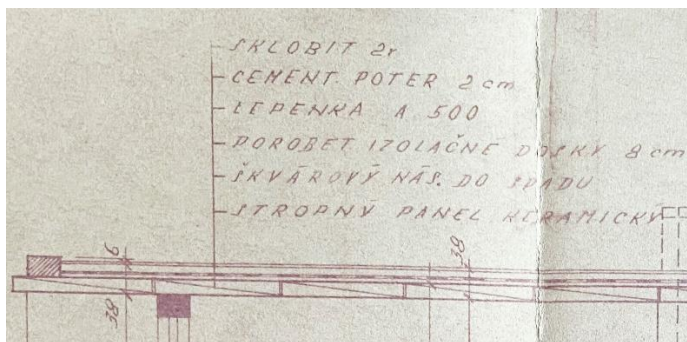 SKLOBIT 2r
CEMENT. POTER 2 cm
LEPENKA A 500
POROBET. IZOLAČNÉ DOSKY 8 cm
ŠKVÁROVÝ NÁS. DO SPÁDU
STROPNÝ PANEL KERAMICKÝ
9
38
38